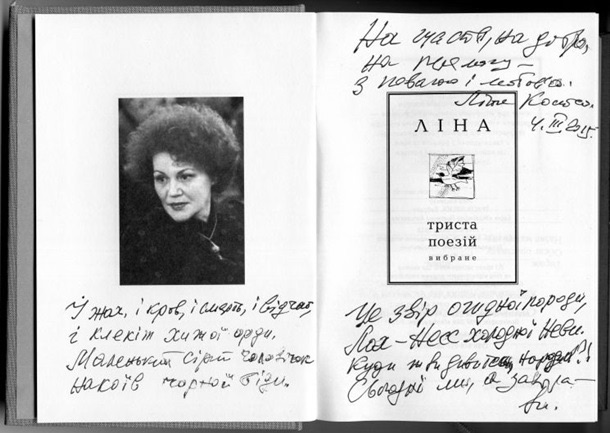 І жах, і кров, і смерть, і відчай,
і клекіт хижої орди.
Маленький сірий чоловічок
накоїв чорної біди.
На щастя, на добро,
на перемогу —
з повагою і любов'ю.
Ліна Костенко.
4. III 2015
ЛІНА
триста
поезій
вибране
Це звір огидної породи,
Лох-Несс холодної Неви.
Куди ж ви дивитесь, народи?!
Сьогодні ми, а завтра —
ви.